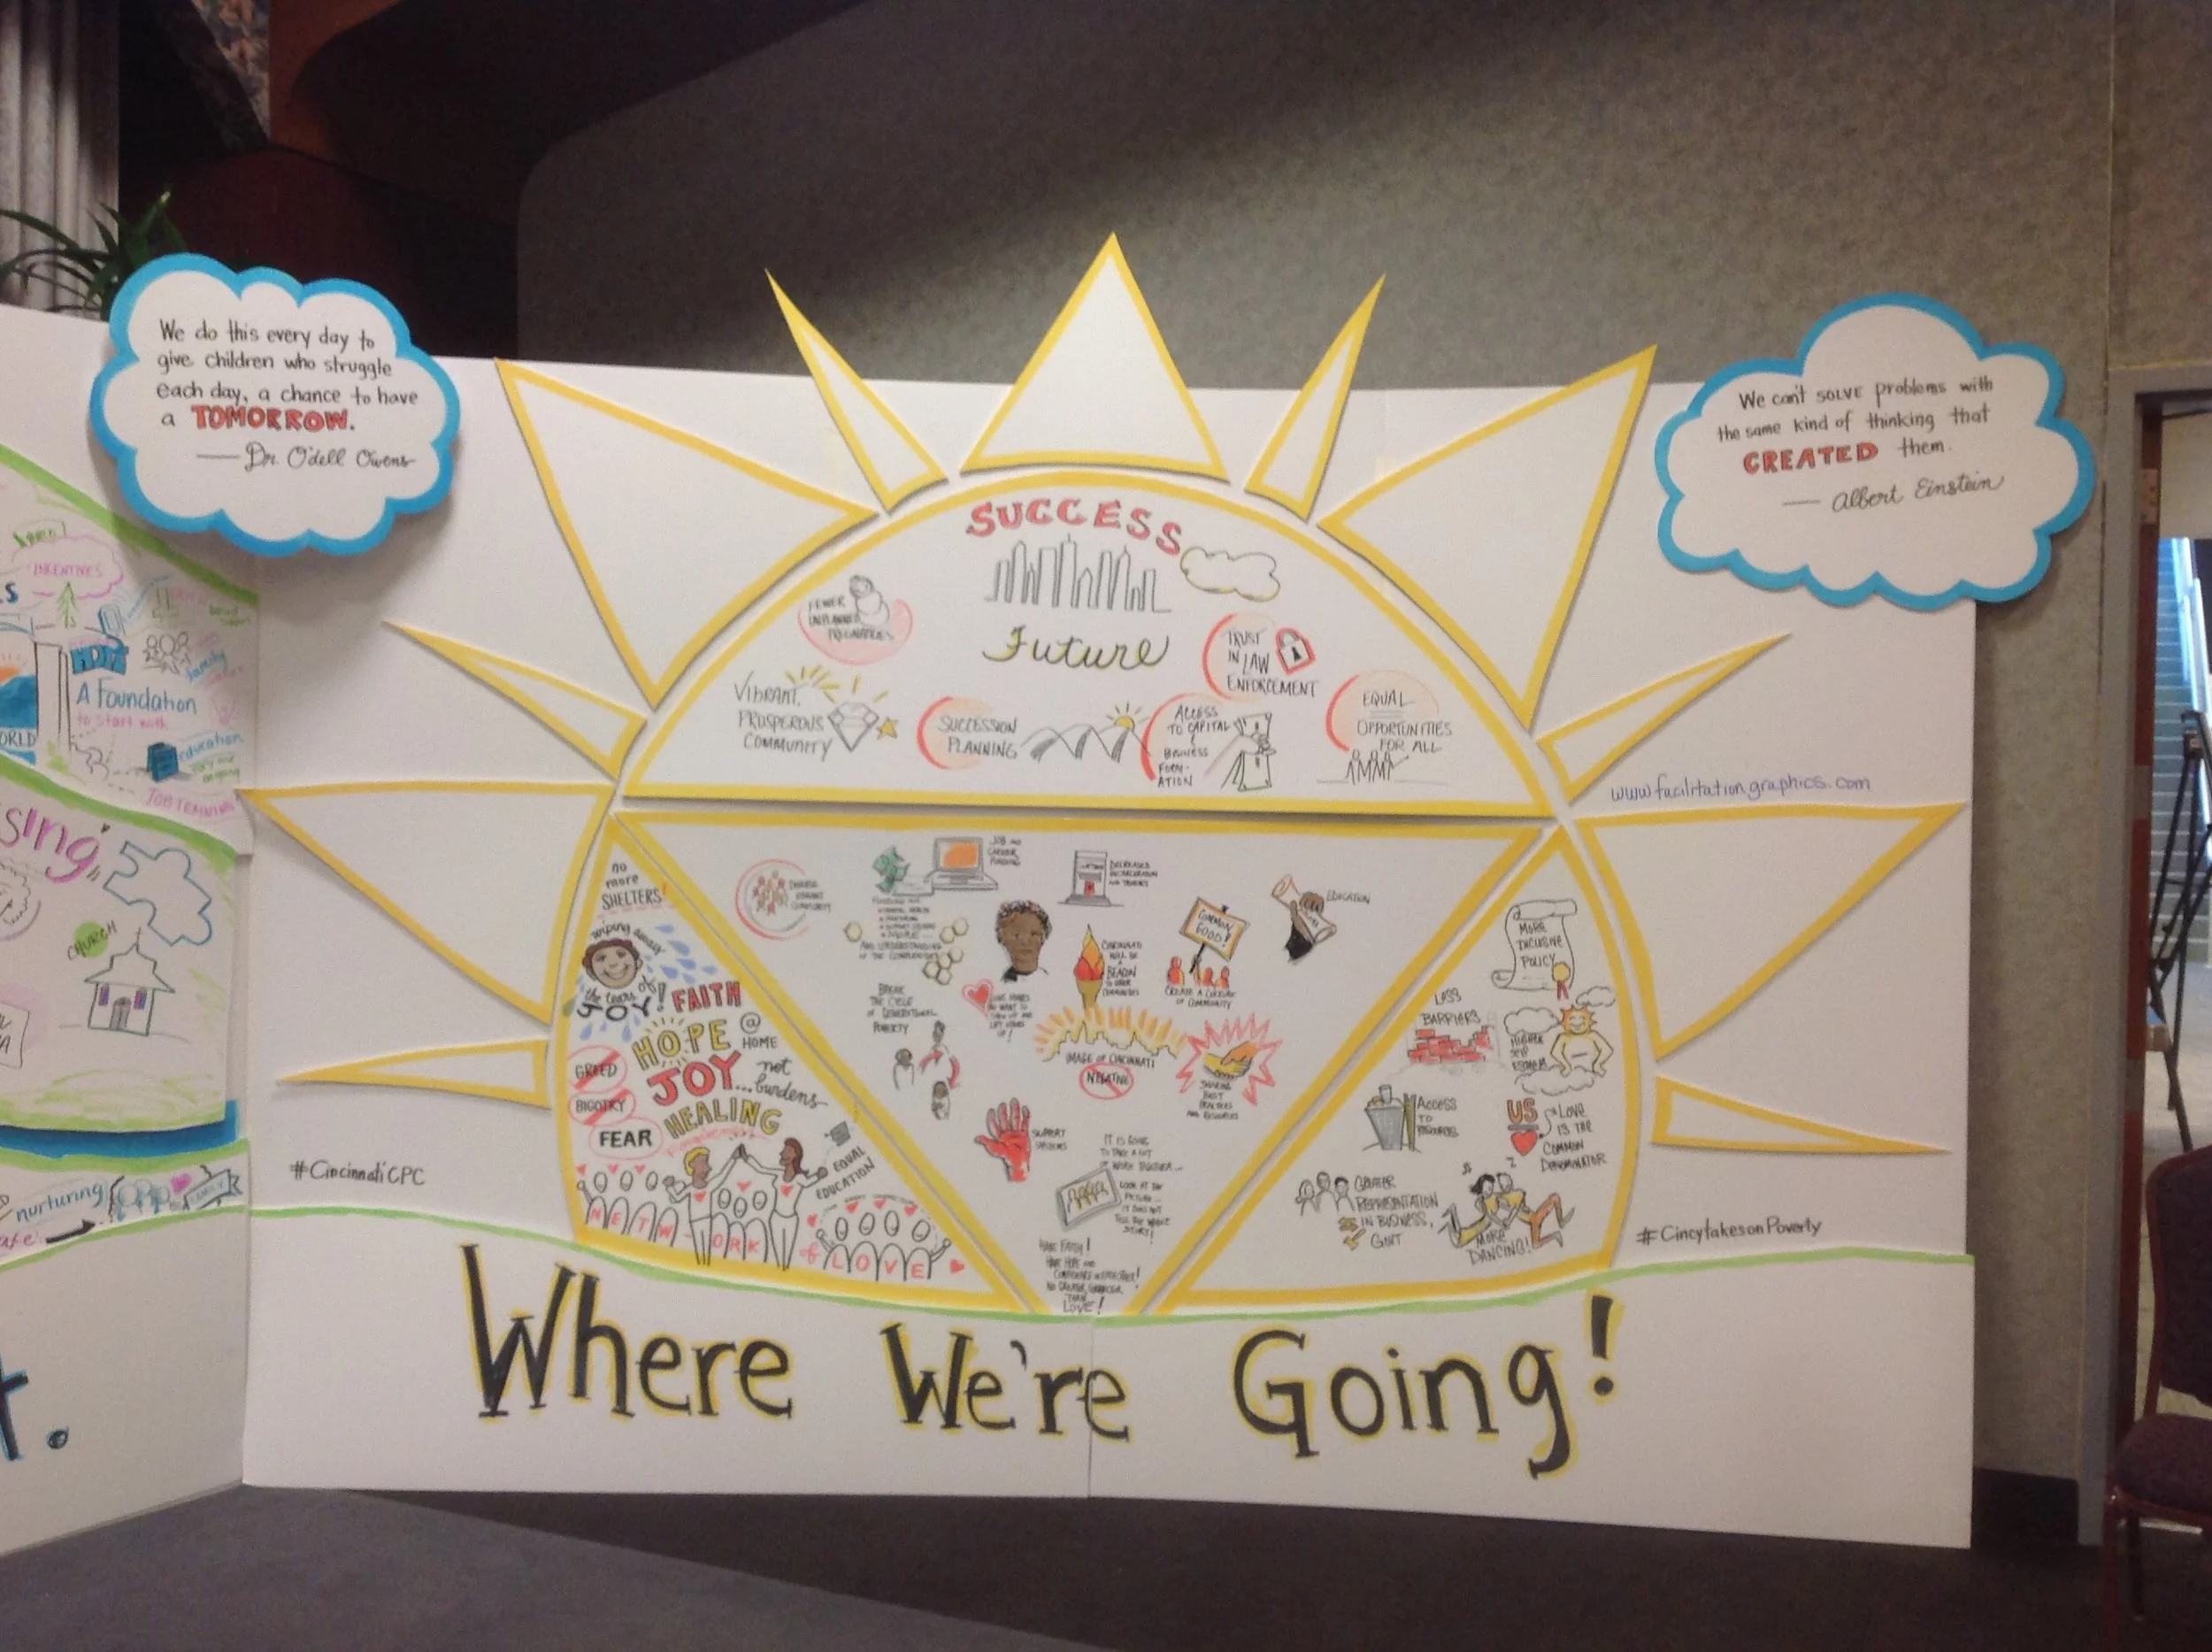 We do this every day to
give children who struggle
each day, a chance to have
a TOMORROW.
— Dr. O'dell Owens
We can't SOLVE problems with
the same kind of thinking that
CREATED them.
— Albert Einstein
SUCCESS
Future
FEWER
UNPLANNED
PREGNANCIES
TRUST
IN LAW
ENFORCEMENT
VIBRANT,
PROSPEROUS
COMMUNITY
SUCCESSION
PLANNING
ACCESS
TO CAPITAL
&
BUSINESS
FORM-
ATION
EQUAL
OPPORTUNITIES
FOR ALL
www.facilitationgraphics.com
no
more
SHELTERS!
wiping away
the tears of
JOY!
FAITH
HOPE @
HOME
JOY... not
burdens
HEALING
GREED
BIGOTRY
FEAR
EQUAL
EDUCATION
NETWORK
of LOVE
JOB AND
CAREER
FUNDING
DECREASED
INCARCERATION
EDUCATION
COMMON
GOOD!
CREATE A CULTURE
OF COMMUNITY
CINCINNATI
WILL BE
A
BEACON
TO OTHER
COMMUNITIES
BREAK
THE CYCLE
OF GENERATIONAL
POVERTY
IMAGE OF CINCINNATI
NEGATIVE
SHARING
BEST
PRACTICES
AND RESOURCES
SUPPORT
SYSTEMS
IT IS GOING
TO TAKE A LOT
OF WORK TOGETHER...
LOOK AT THE
PICTURE...
IT DOES NOT
TELL THE WHOLE
STORY!
HAVE FAITH!
HAVE HOPE AND
CONFIDENCE IN EACH OTHER!
THAN
LOVE!
MORE
INCLUSIVE
POLICY
LESS
BARRIERS
HIGHER
SELF
ESTEEM
ACCESS
TO
RESOURCES
US
LOVE
IS THE
COMMON
DENOMINATOR
GREATER
REPRESENTATION
IN BUSINESS,
GOVT
MORE
DANCING!
#CincinnatiCPC
#CincyTakesonPoverty
Where We're Going!
INCENTIVES
HOPE
family
A Foundation
to start with
education
JOB TRAINING
CHURCH
nurturing
FAMILY